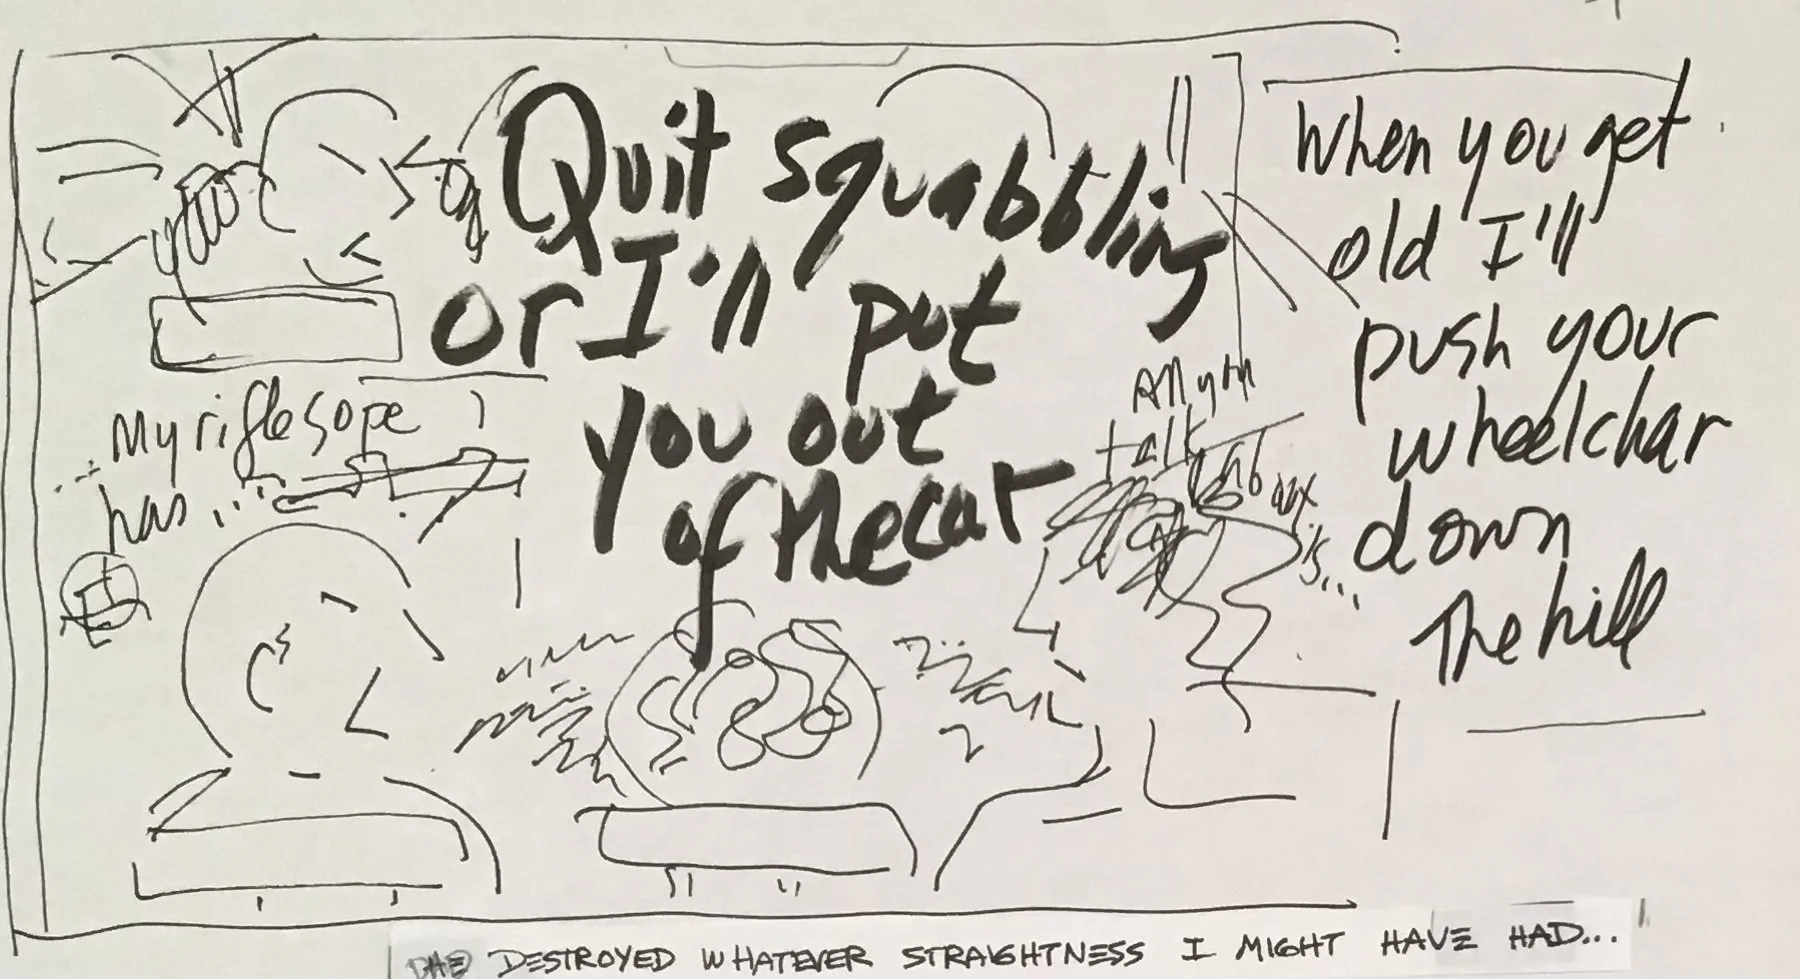 Quit squabbling
or I'll put
you out
of the car
When you get
old I'll
push your
wheelchar
down
The hill
My rifle sope
has...
All you
talk
is...
DESTROYED WHATEVER STRAIGHTNESS I MIGHT HAVE HAD...